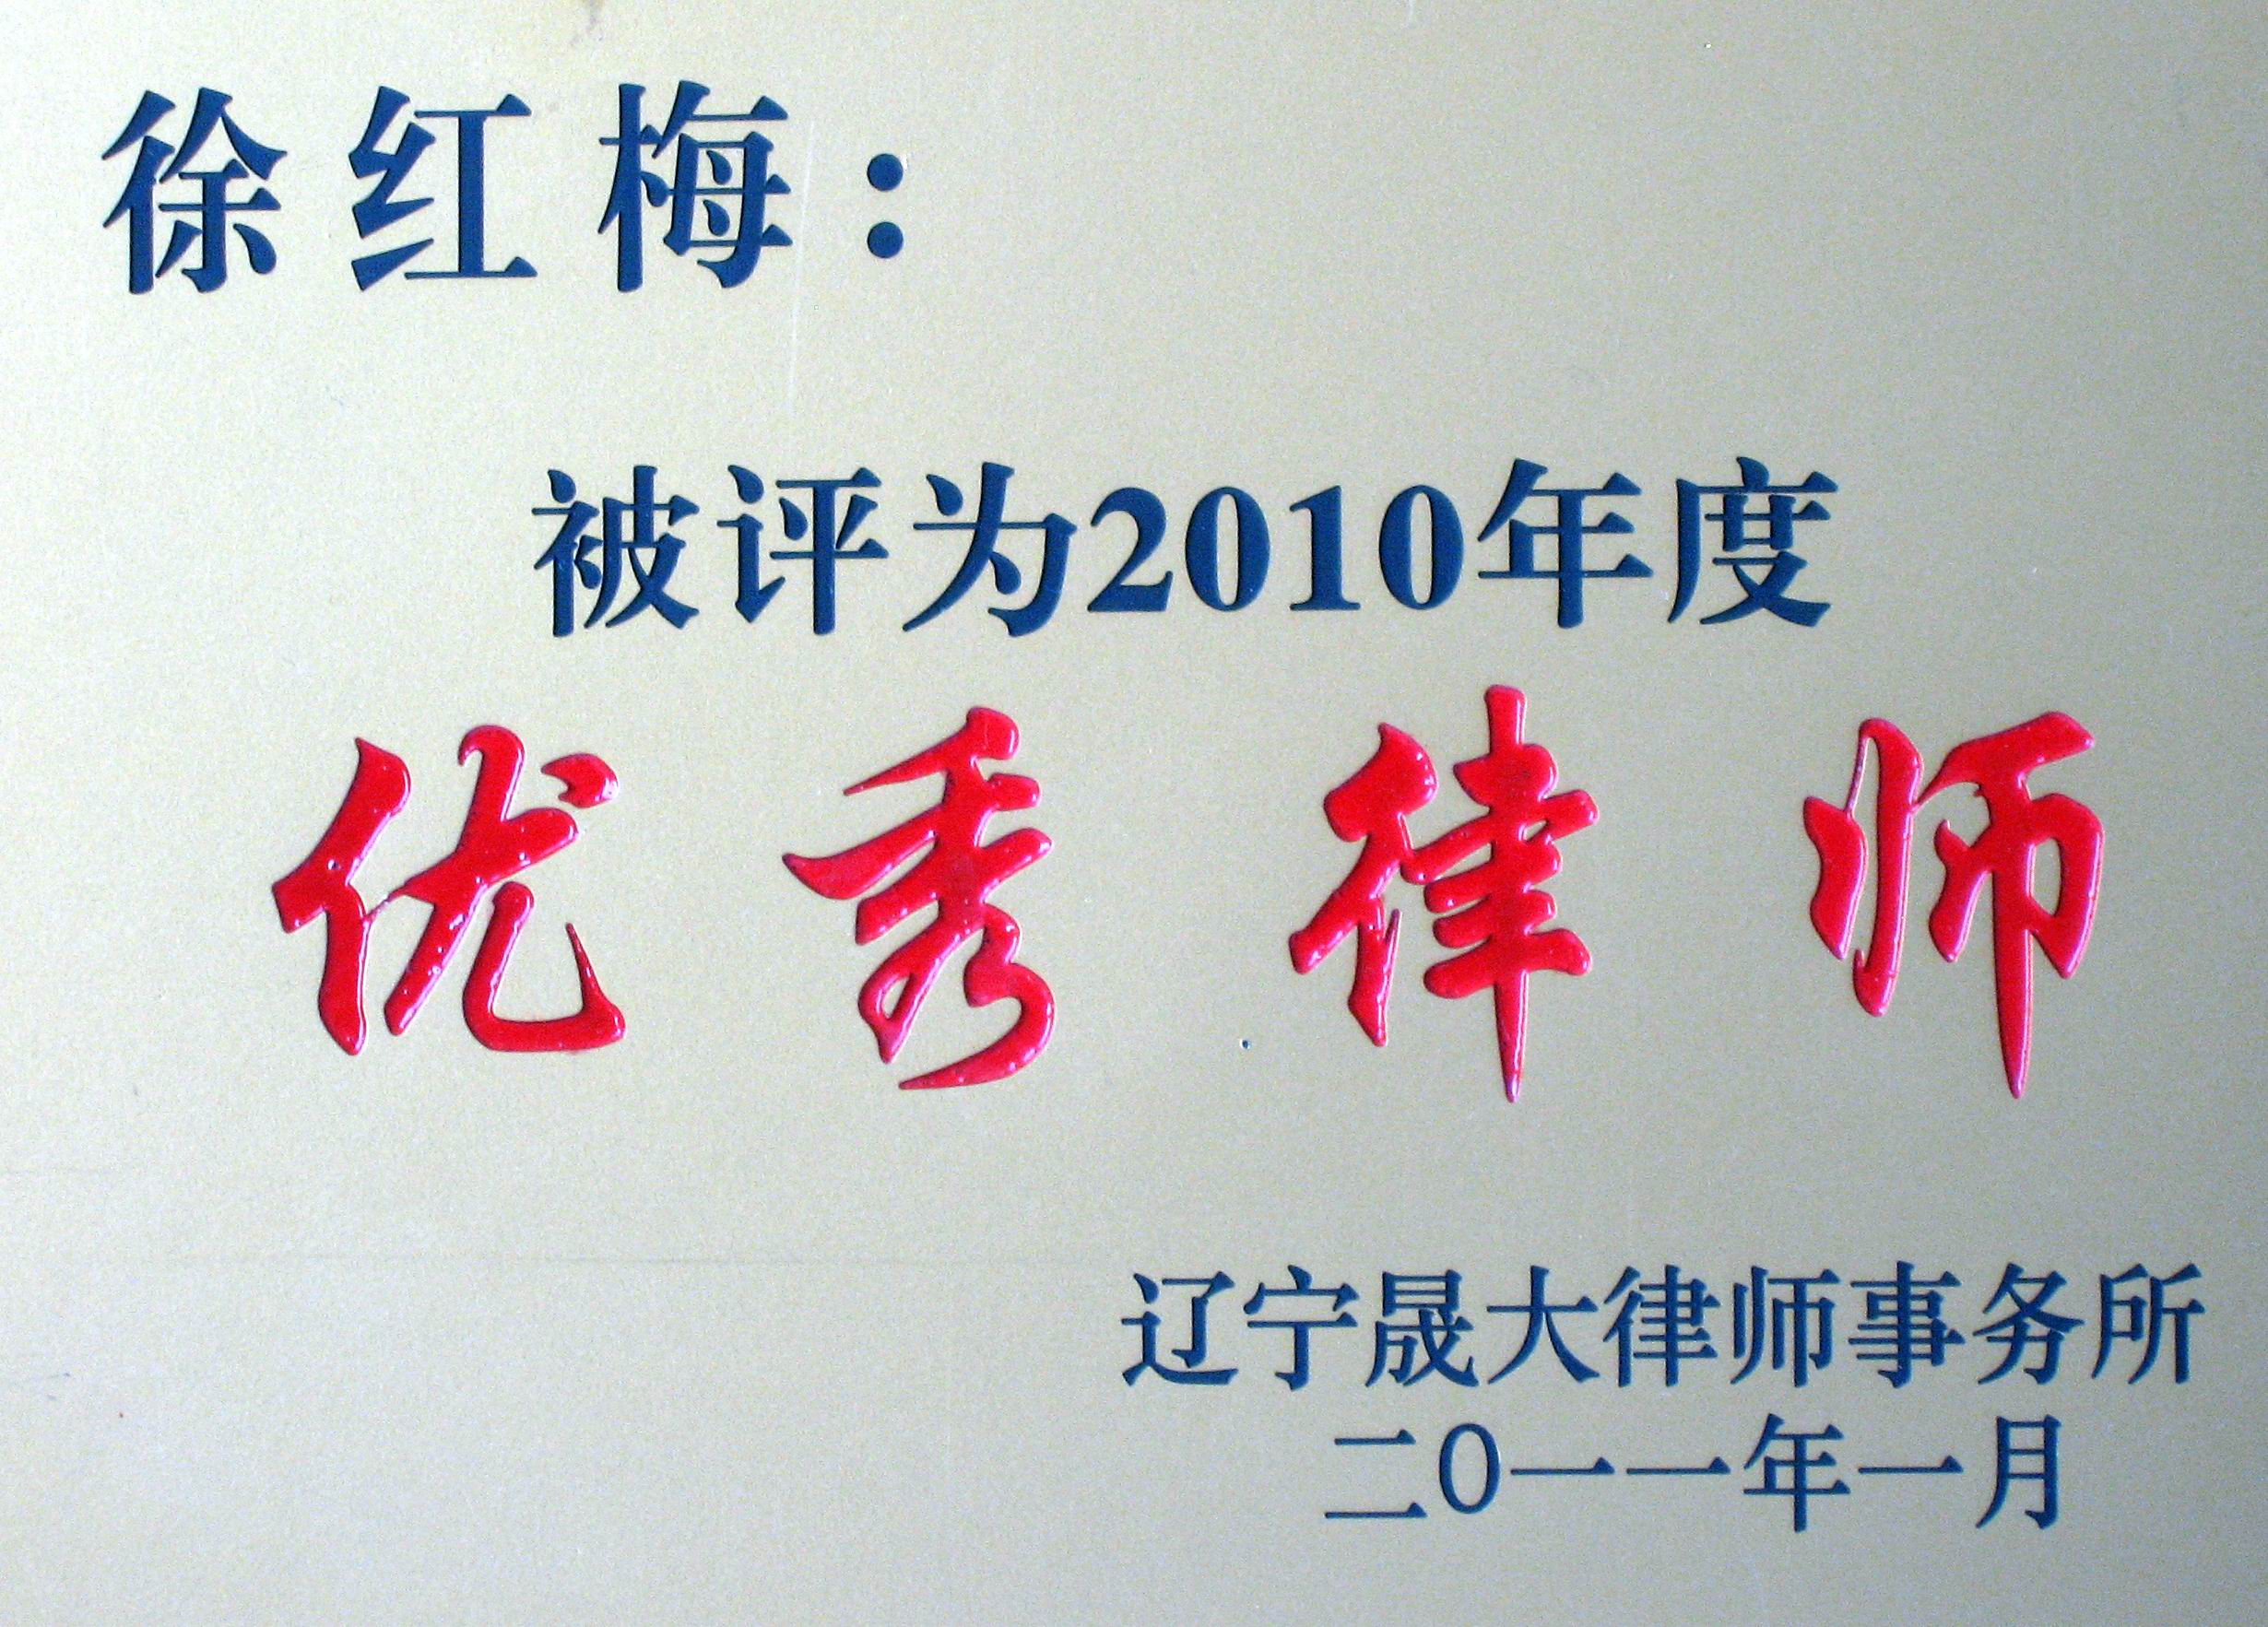 徐红梅：
被评为2010年度
优秀律师
辽宁晟大律师事务所
二〇一一年一月